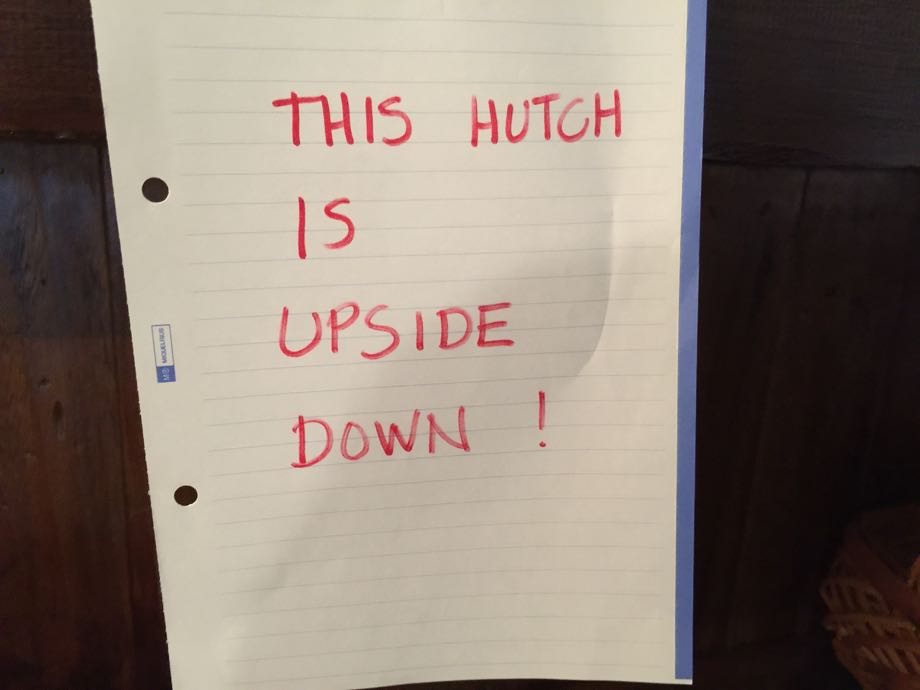 THIS HUTCH
IS
UPSIDE
DOWN !
MIQUELRIUS